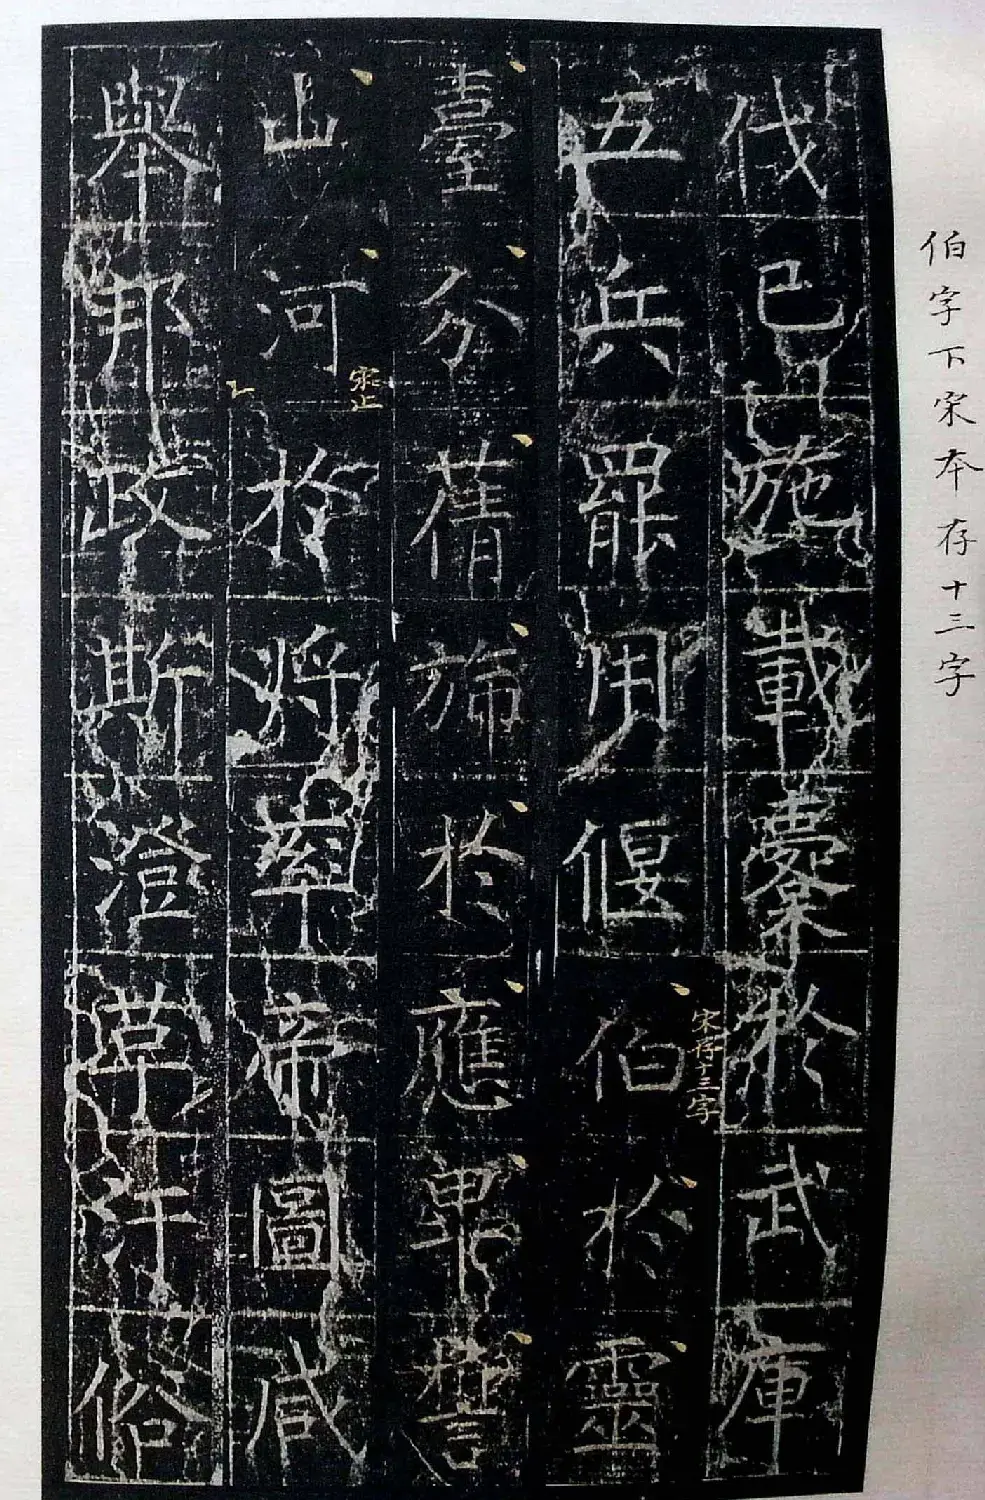 伯字下宋本存十三字
伐已施載櫜於武庫
五兵罷用偃伯於靈
宋存十三字
臺分蒨旆於應誓
山河於將率帝圖咸
宋止
舉邦政斯澄草汙俗